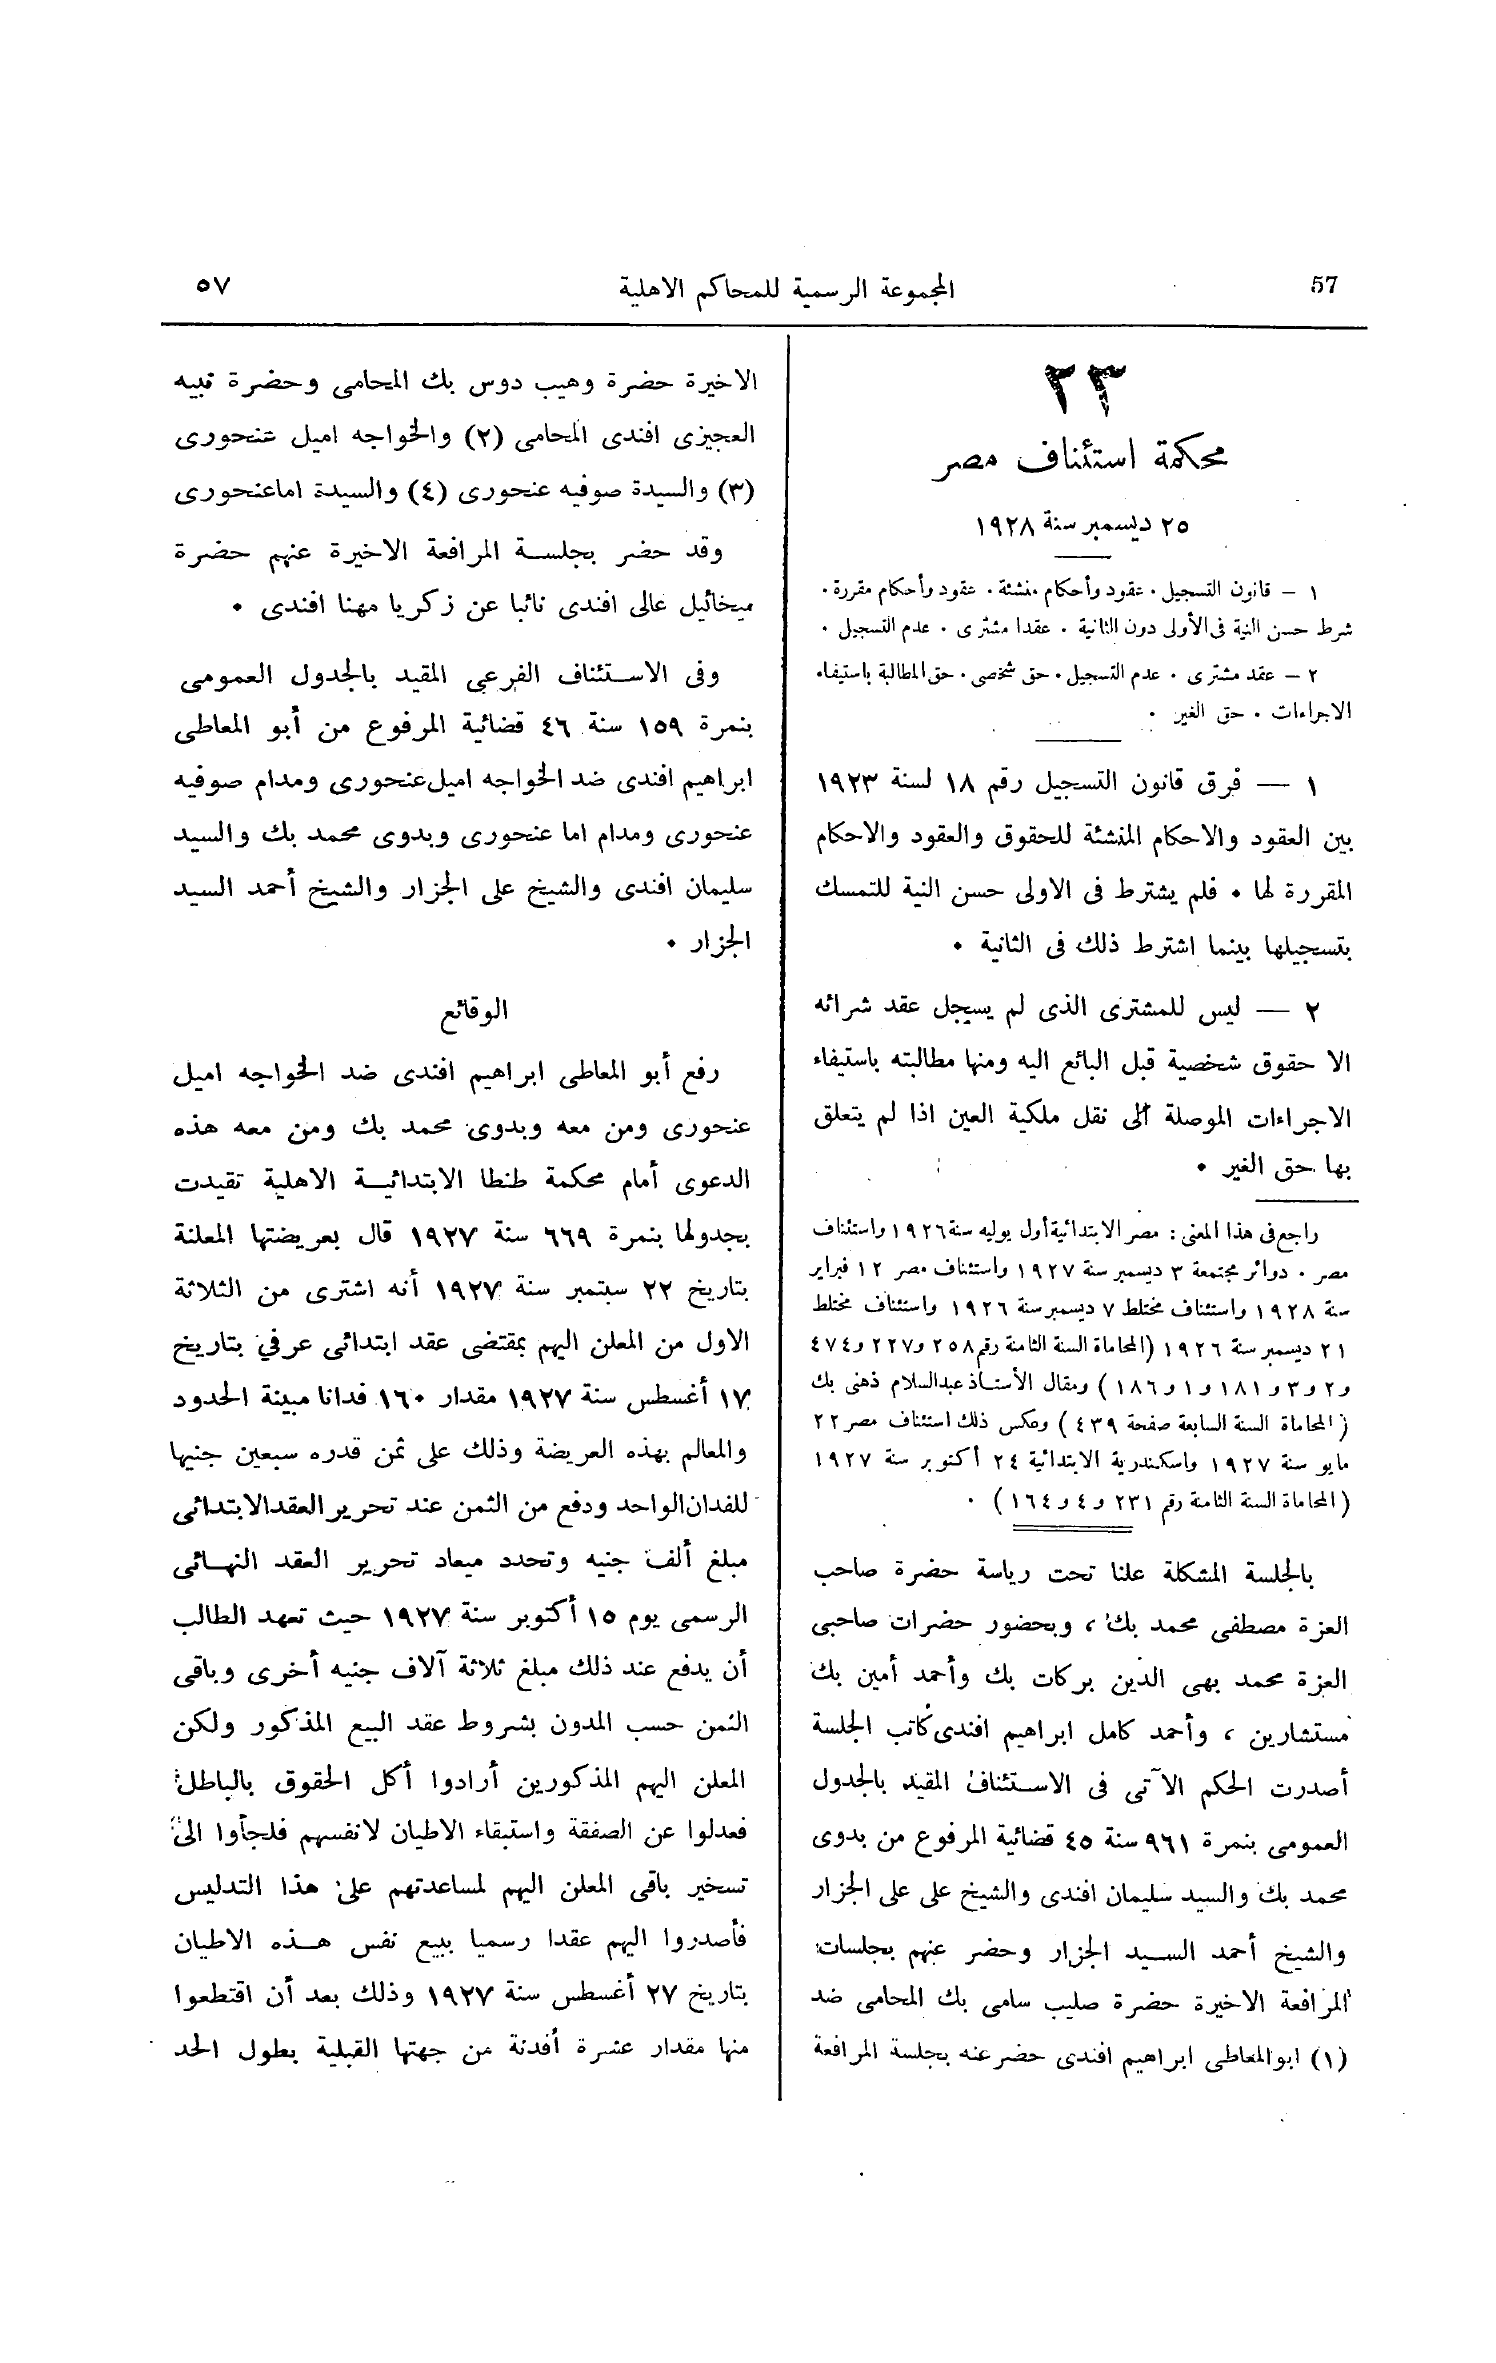 57
المجموعة الرسمية للمحاكم الاهلية
٥٧
٢٣
محكمة استئناف مصر
٢٥ ديسمبر سنة ١٩٢٨
١ – قانون التسجيل . عقود وأحكام منشئة . عقود وأحكام مقررة .
شرط حسن النية فى الأولى دون الثانية . عقدا مشترى . عدم التسجيل .
٢ – عقد مشترى . عدم التسجيل . حق شخصى . حق المطالبة باستيفاء
الاجراءات . حق الغير .
١ — فرق قانون التسجيل رقم ١٨ لسنة ١٩٢٣
بين العقود والاحكام المنشئة للحقوق والعقود والاحكام
المقررة لها . فلم يشترط فى الاولى حسن النية للتمسك
بتسجيلها بينما اشترط ذلك فى الثانية .
٢ — ليس للمشترى الذى لم يسجل عقد شرائه
الا حقوق شخصية قبل البائع اليه ومنها مطالبته باستيفاء
الاجراءات الموصلة الى نقل ملكية العين اذا لم يتعلق
بها حق الغير .
راجع فى هذا المعنى : مصر الابتدائية أول يوليه سنة ١٩٢٦ واستئناف
مصر . دوائر مجتمعة ٣ ديسمبر سنة ١٩٢٧ واستئناف مصر ١٢ فبراير
سنة ١٩٢٨ واستئناف مختلط ٧ ديسمبر سنة ١٩٢٦ واستئناف مختلط
٢١ ديسمبر سنة ١٩٢٦ (المحاماة السنة الثامنة رقم ٢٥٨ و٢٢٧ و٤٧٤
و٢ و٣ و١٨١ و١ و١٨٦) ومقال الأستاذ عبد السلام ذهنى بك
(المحاماة السنة السابعة صفحة ٤٣٩) وعكس ذلك استئناف مصر ٢٢
مايو سنة ١٩٢٧ واسكندرية الابتدائية ٢٤ أكتوبر سنة ١٩٢٧
(المحاماة السنة الثامنة رقم ٢٣١ و٤ و١٦٤) .
بالجلسة المشكلة علنا تحت رياسة حضرة صاحب
العزة مصطفى محمد بك ، وبحضور حضرات صاحبى
العزة محمد بهى الدين بركات بك وأحمد أمين بك
مستشارين ، وأحمد كامل ابراهيم افندى كاتب الجلسة
أصدرت الحكم الآتى فى الاستئناف المقيد بالجدول
العمومى بنمرة ٩٦١ سنة ٤٥ قضائية المرفوع من بدوى
محمد بك والسيد سليمان افندى والشيخ على على الجزار
والشيخ أحمد السيد الجزار وحضر عنهم بجلسات
المرافعة الاخيرة حضرة صليب سامى بك المحامى ضد
(١) ابو المعاطى ابراهيم افندى حضر عنه بجلسة المرافعة
الاخيرة حضرة وهيب دوس بك المحامى وحضرة نبيه
العجيزى افندى المحامى (٢) والخواجه اميل عنحورى
(٣) والسيدة صوفيه عنحورى (٤) والسيدة اما عنحورى
وقد حضر بجلسة المرافعة الاخيرة عنهم حضرة
ميخائيل عالى افندى نائبا عن زكريا مهنا افندى .
وفى الاستئناف الفرعى المقيد بالجدول العمومى
بنمرة ١٥٩ سنة ٤٦ قضائية المرفوع من أبو المعاطى
ابراهيم افندى ضد الخواجه اميل عنحورى ومدام صوفيه
عنحورى ومدام اما عنحورى وبدوى محمد بك والسيد
سليمان افندى والشيخ على الجزار والشيخ أحمد السيد
الجزار .
الوقائع
رفع أبو المعاطى ابراهيم افندى ضد الخواجه اميل
عنحورى ومن معه وبدوى محمد بك ومن معه هذه
الدعوى أمام محكمة طنطا الابتدائية الاهلية تقيدت
بجدولها بنمرة ٦٦٩ سنة ١٩٢٧ قال بعريضتها المعلنة
بتاريخ ٢٢ سبتمبر سنة ١٩٢٧ أنه اشترى من الثلاثة
الاول من المعلن اليهم بمقتضى عقد ابتدائى عرفي بتاريخ
١٧ أغسطس سنة ١٩٢٧ مقدار ١٦٠ فدانا مبينة الحدود
والمعالم بهذه العريضة وذلك على ثمن قدره سبعين جنيها
للفدان الواحد ودفع من الثمن عند تحرير العقد الابتدائى
مبلغ ألف جنيه وتحدد ميعاد تحرير العقد النهائى
الرسمى يوم ١٥ أكتوبر سنة ١٩٢٧ حيث تعهد الطالب
أن يدفع عند ذلك مبلغ ثلاثة آلاف جنيه أخرى وباقى
الثمن حسب المدون بشروط عقد البيع المذكور ولكن
المعلن اليهم المذكورين أرادوا أكل الحقوق بالباطل
فعدلوا عن الصفقة واستبقاء الاطيان لانفسهم فلجأوا الى
تسخير باقى المعلن اليهم لمساعدتهم على هذا التدليس
فأصدروا اليهم عقدا رسميا ببيع نفس هذه الاطيان
بتاريخ ٢٧ أغسطس سنة ١٩٢٧ وذلك بعد أن اقتطعوا
منها مقدار عشرة أفدنة من جهتها القبلية بطول الحد